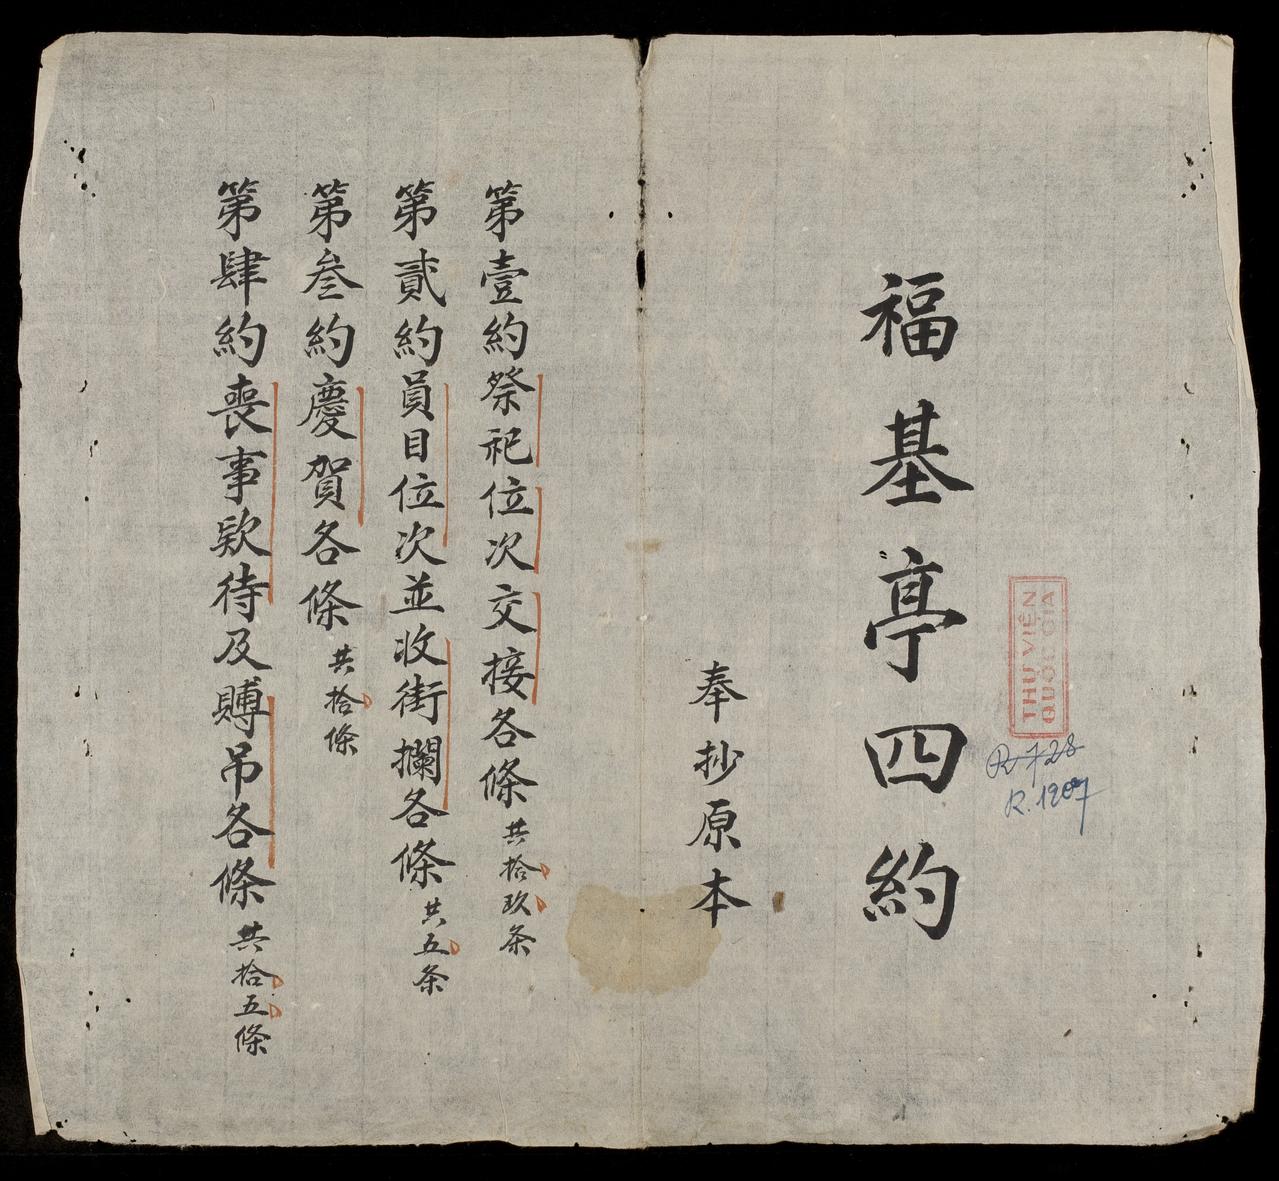 福基亭四約
THƯ VIỆN
QUỐC GIA
R 728
R. 1207
奉抄原本
第壹約祭祀位次交接各條共拾玖条
第貳約員目位次並收街攔各條共五条
第叁約慶賀各條共拾條
第肆約喪事欵待及賻吊各條共拾五條